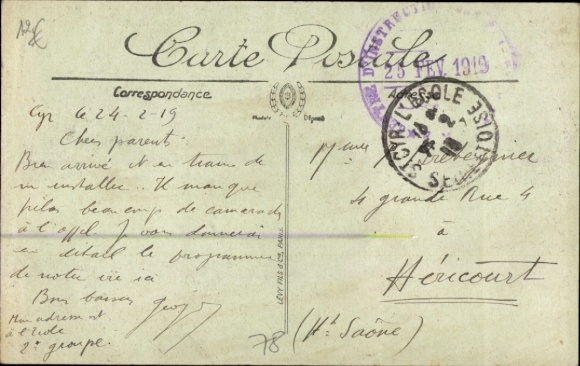 12€
Carte Postale
Correspondance
Adresse
Modèle Déposé
D'INSTRUCTION
25 FEV. 1919
ST CYR-L'ECOLE
SEINE ET OISE
Cyr le 24-2-19
Chers parents
Bien arrivé et en train de
m installer. Il manque
plus beaucoup de camarades
à l'appel. Je vous donnerai
en détail le programme
de notre vie ici
Bons baisers
Mon adresse est
à l'école
2e groupe.
LÉVY FILS & Cie, PARIS
78
Mme
4 grande Rue 4
à
Héricourt
(Hte Saône)